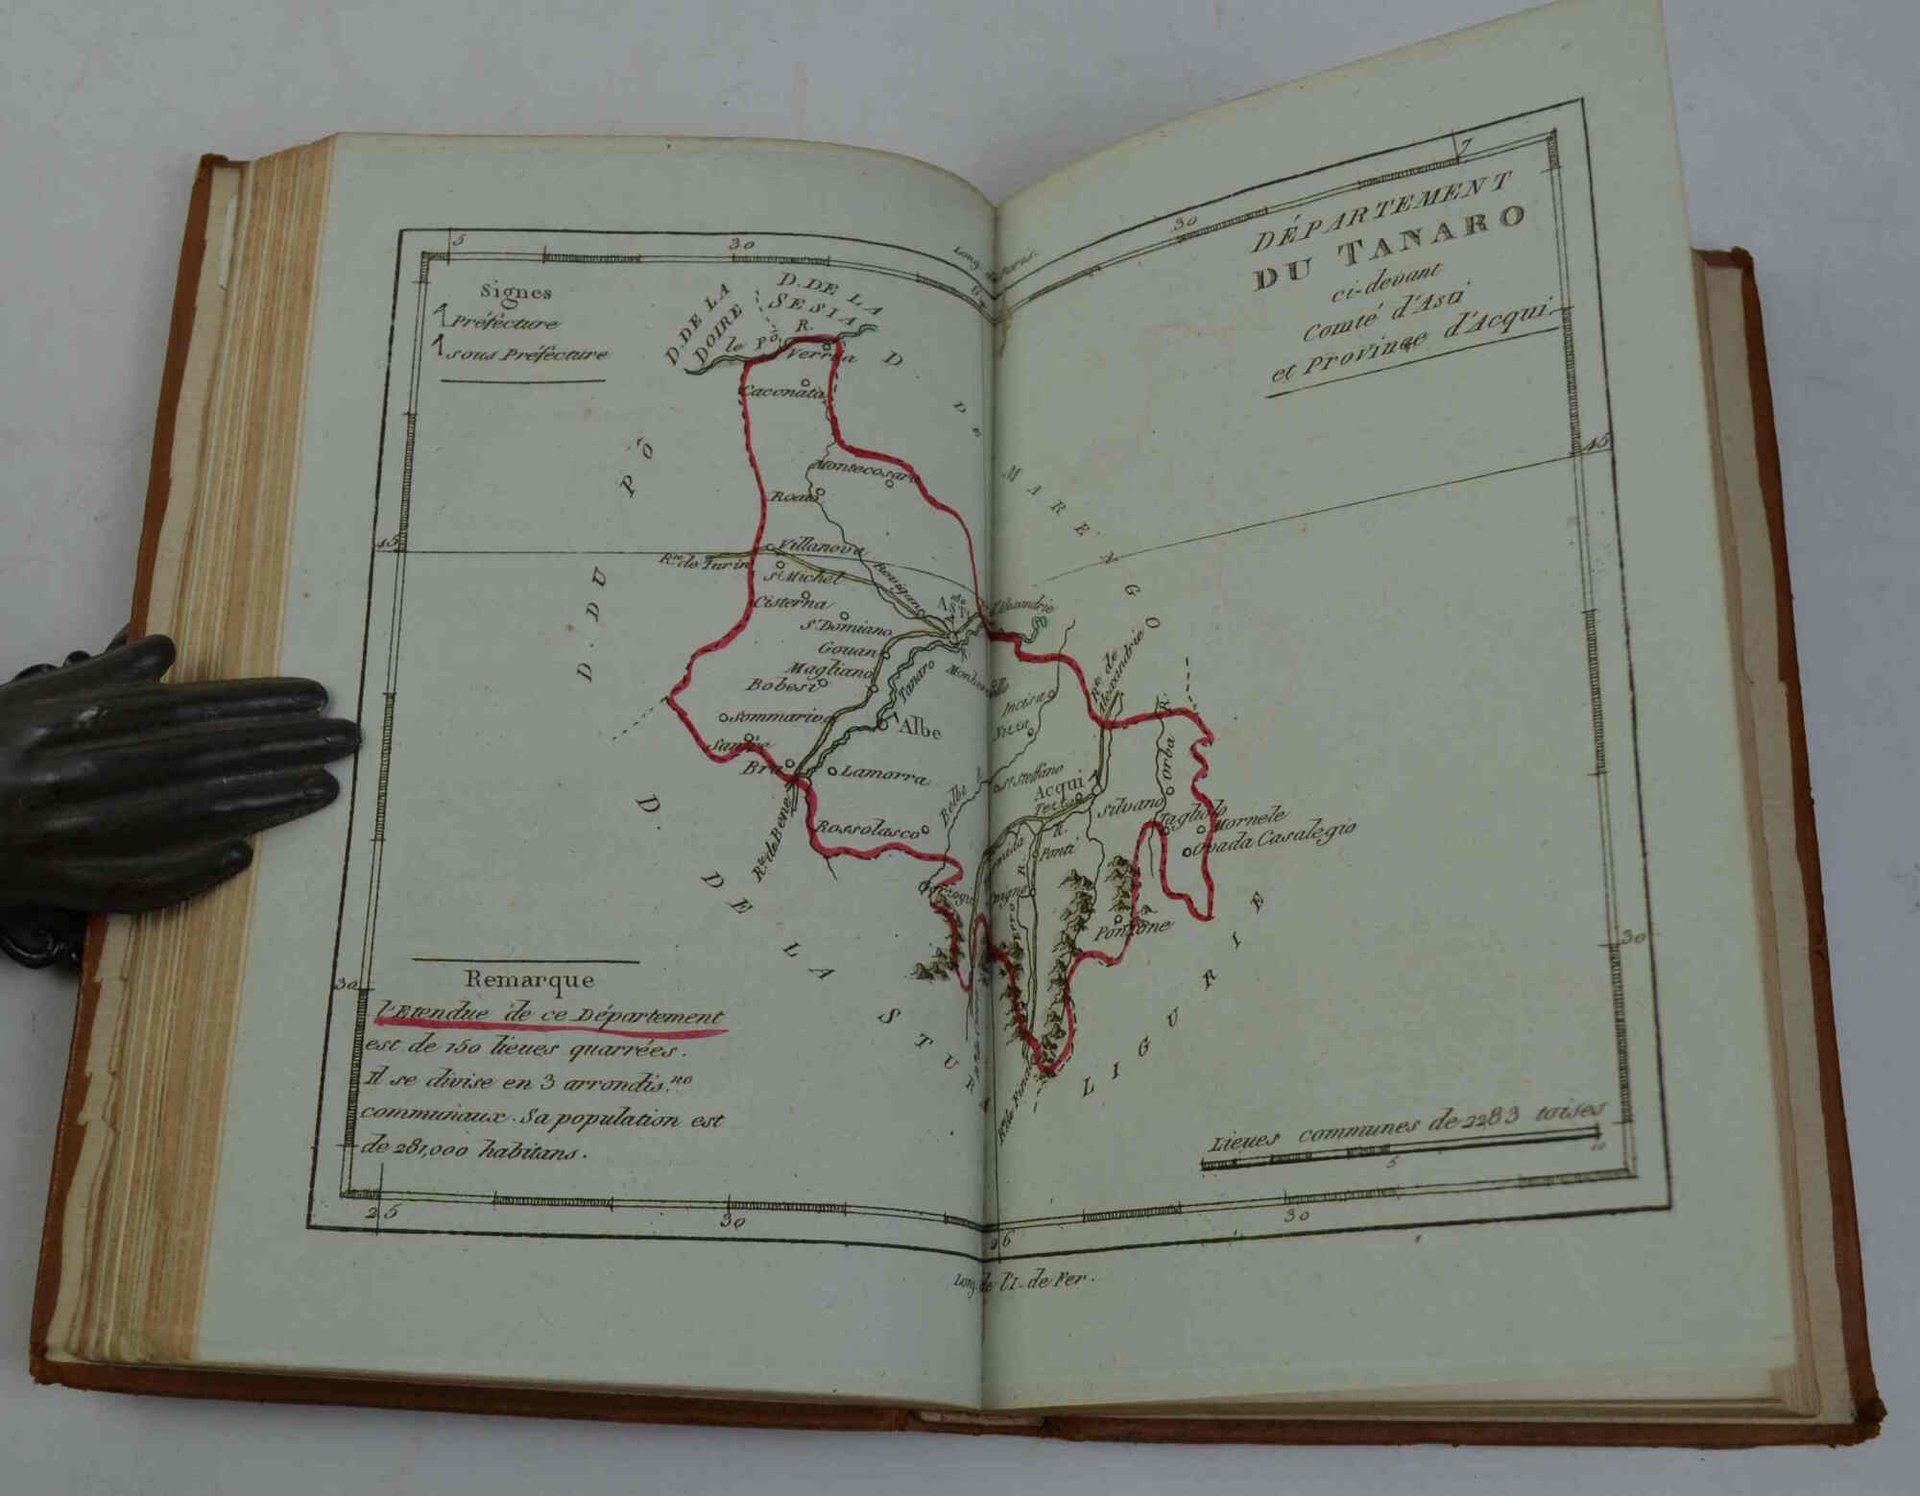 DÉPARTEMENT
DU TANARO
ci-devant
Comté d'Asti
et Province d'Acqui
5
30
Long. de Paris.
30
7
Signes
Préfecture
sous Préfecture
D. DE LA
DOIRE
D. DE LA
SESIA
le Pô R.
Verrua
Caconato
D. DE MARENGO
D. DU PÔ
Montecosaro
Roato
45
45
Villanova
Rte. de Turin
St. Michel
Cisterna
S. Domiano
Gouan
Magliano
Asti
Rte. de Alexandrie
Tanaro
Sommariva
Albe
Sanfre
Bra
Lamorra
Incisa
Nizza
Orba R.
Belbo
St. Steffano
Acqui
Rte. de Bene
Rossolasco
Silvano
Tagliolo
Mornele
Ovada Casalegio
Ponti
Ponzone
D. DE LA STURA
LIGURIE
30
30
Remarque
l'Etendue de ce Département
est de 150 lieues quarrées.
Il se divise en 3 arrondis.no
communaux. Sa population est
de 281,000 habitans.
Lieues communes de 2283 toises
5
10
25
30
26
30
Long. de l'I. de Fer.